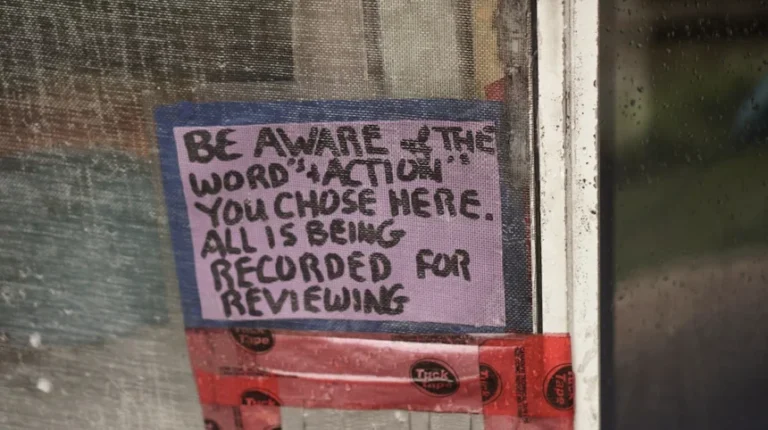 BE AWARE of THE
WORD"s"+ACTION"s"
YOU CHOSE HERE.
ALL IS BEING
RECORDED FOR
REVIEWING
Tuck
Tape
Tuck
Tape
Tuck
Tape
Tuck
Tape